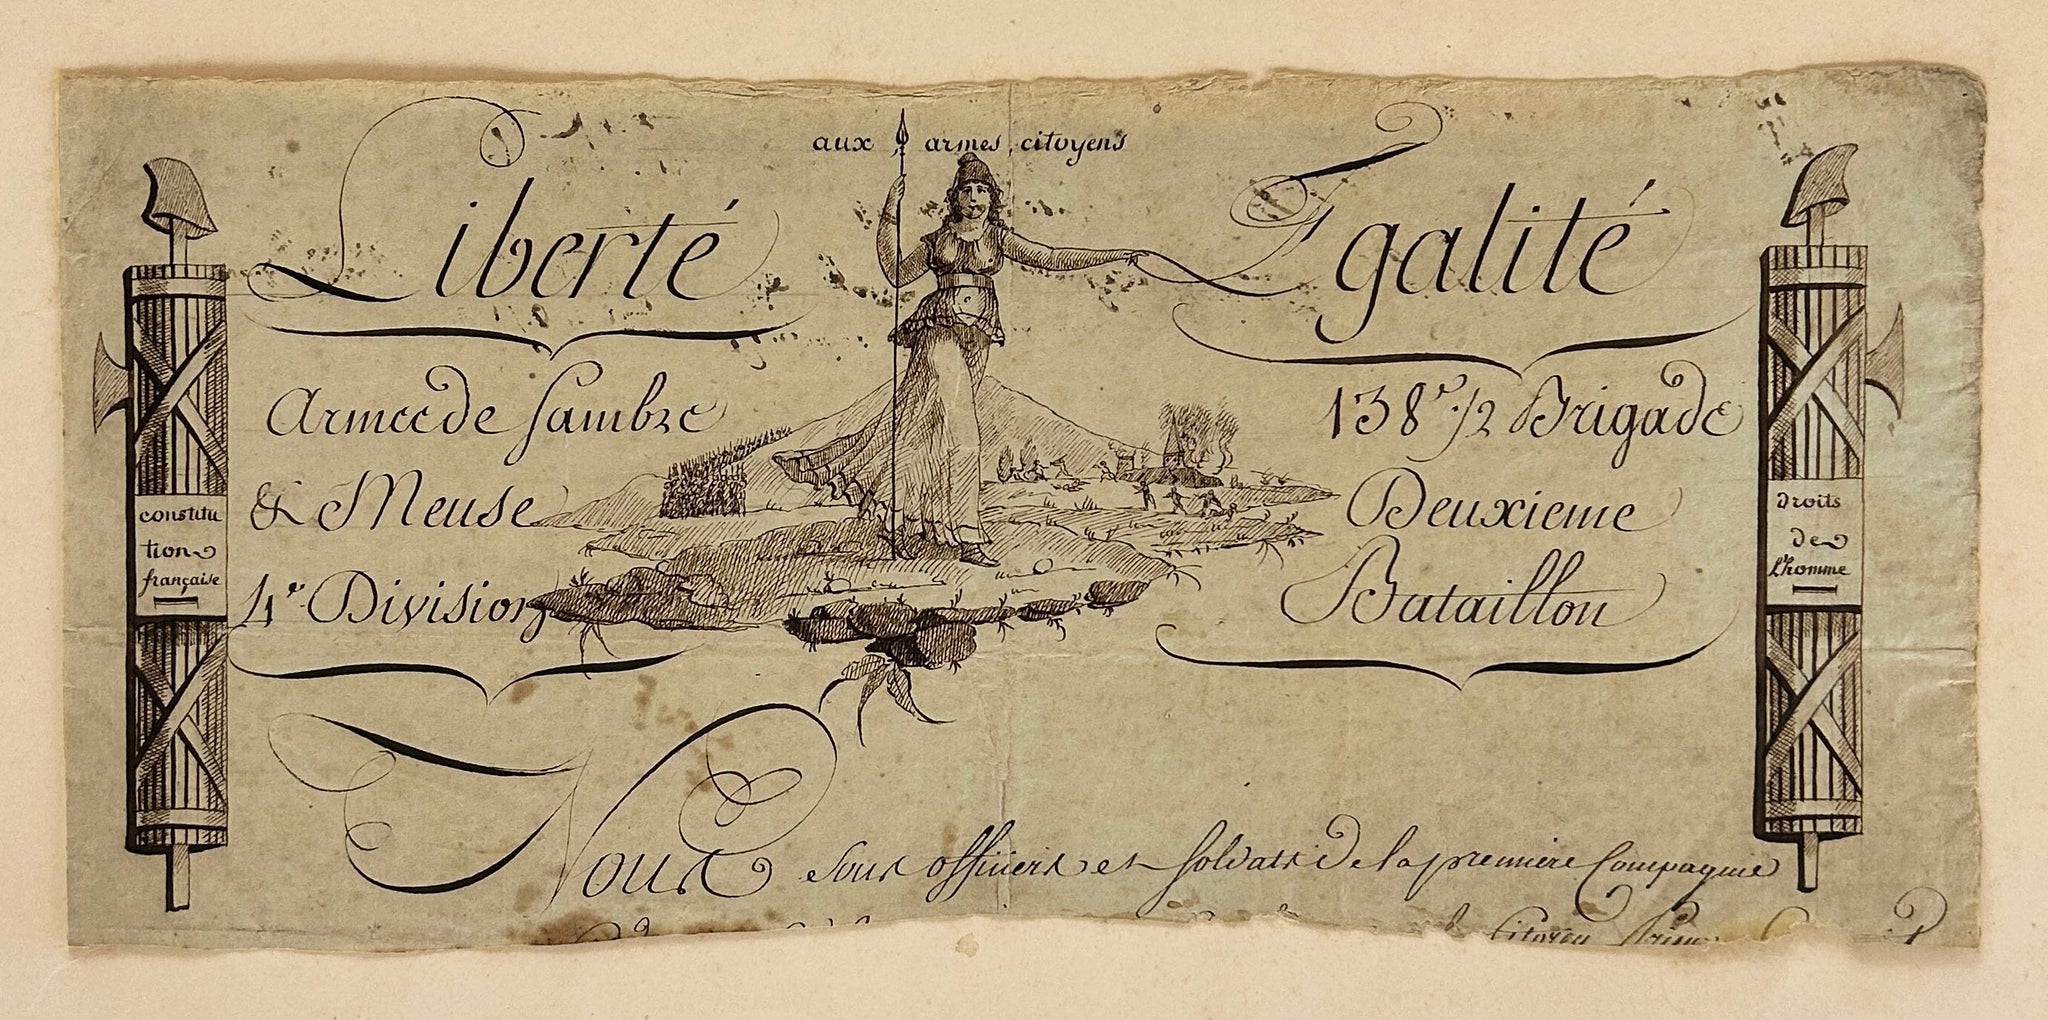 aux armes, citoyens
Liberté
Egalité
Armee de Sambre
& Meuse
4e. Division
138e. 1/2 Brigade
Deuxieme
Bataillon
constitu
tion
française
Droits
de
l'homme
Nous sous officiers et soldats de la premiere Compagnie
Citoyen